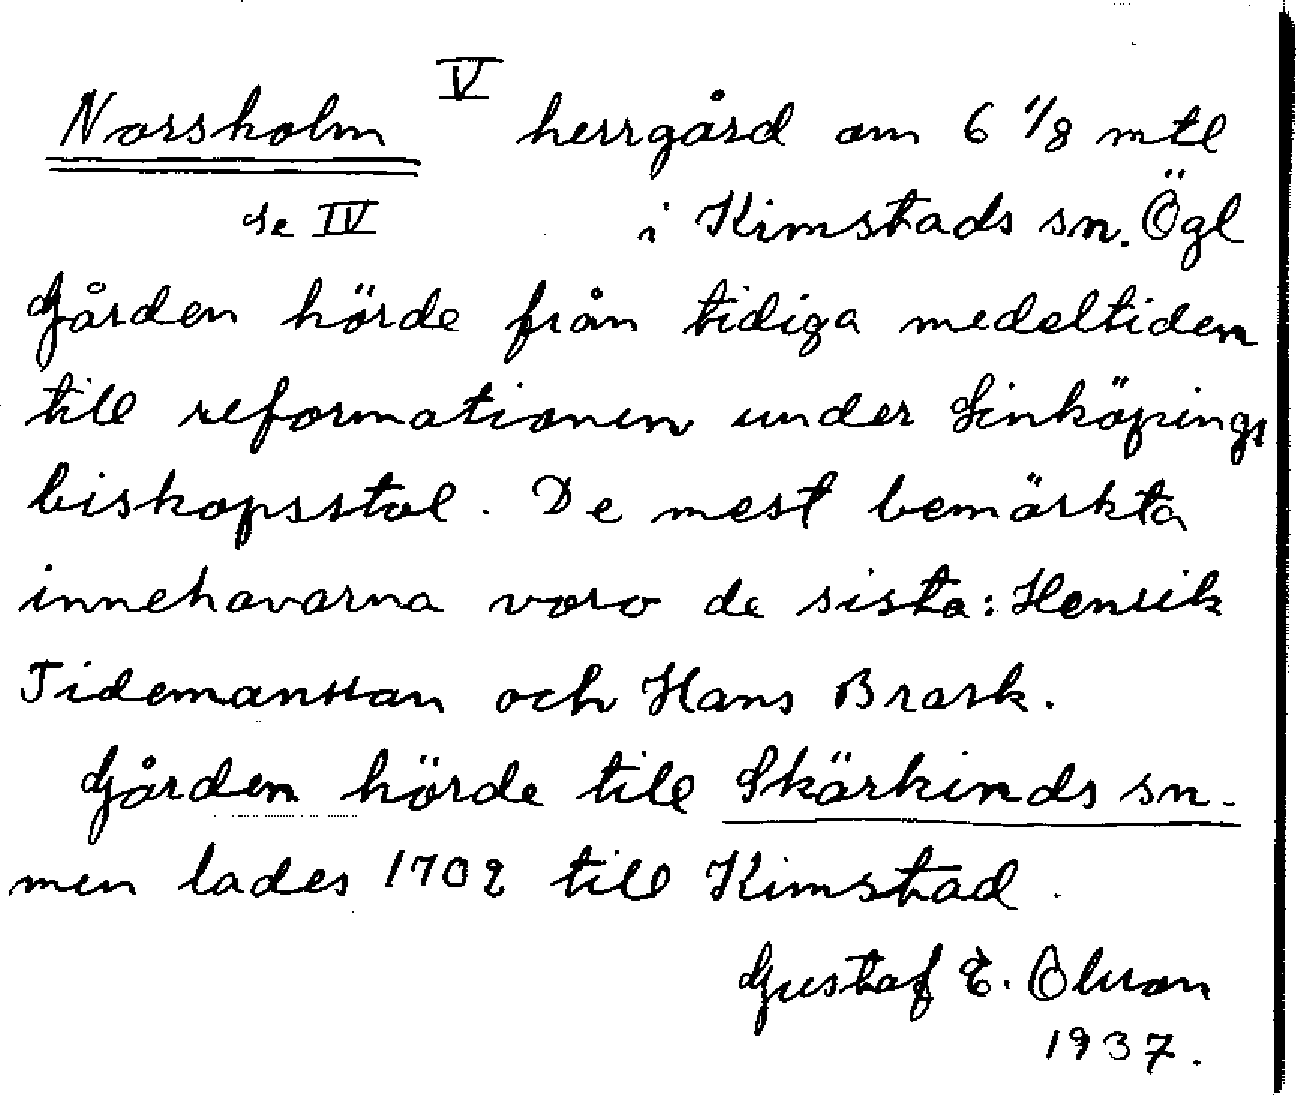 Norsholm V herrgård om 6 1/8 mtl
se IV i Kimstads sn. Ögl
Gården hörde från tidiga medeltiden
till reformationen under Linköpings
biskopsstol. De mest bemärkta
innehavarna voro de sista: Henrik
Tidemansson och Hans Brask.
Gården hörde till Skärkinds sn.
men lades 1702 till Kimstad.
Gustaf E. Olsson
1937.